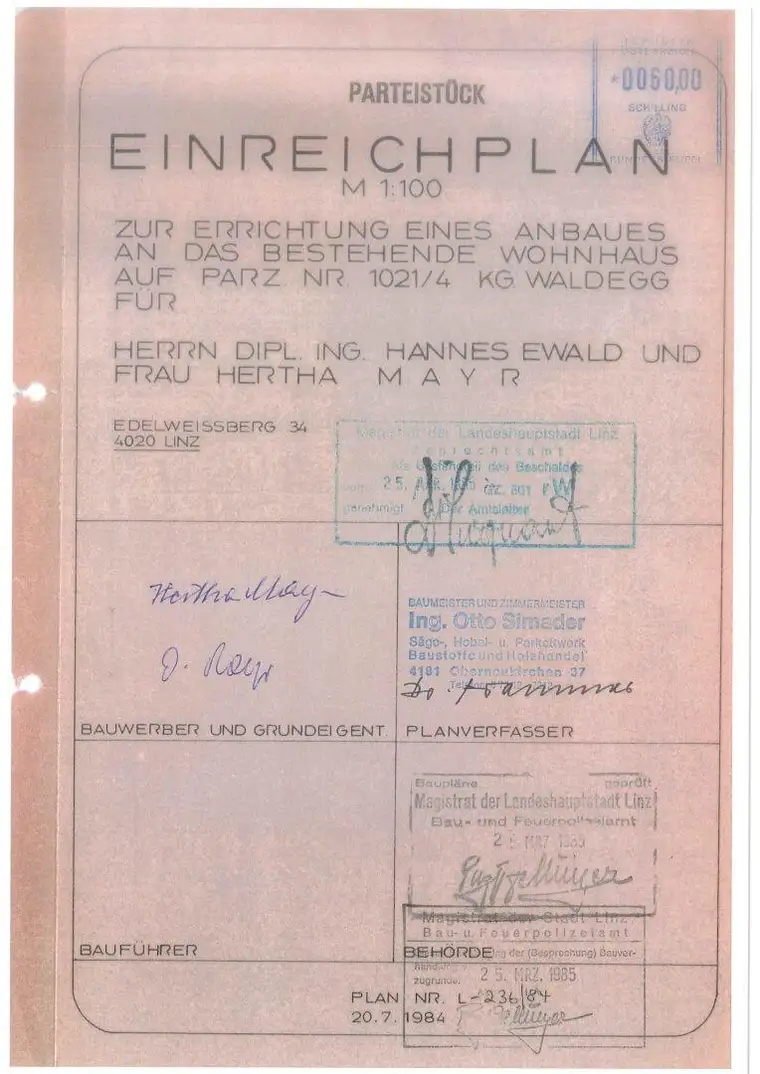 PARTEISTÜCK
*0060,00
SCHILLING
EINREICHPLAN
M 1:100
ZUR ERRICHTUNG EINES ANBAUES
AN DAS BESTEHENDE WOHNHAUS
AUF PARZ. NR. 1021/4 KG. WALDEGG
FÜR
HERRN DIPL. ING. HANNES EWALD UND
FRAU HERTHA MAYR
EDELWEISSBERG 34
4020 LINZ
Magistrat der Landeshauptstadt Linz
Baurechtsamt
als Bestandteil des Bescheides
vom 25. APR. 1985 GZ. 501 / W
genehmigt Der Amtsleiter
Hertha Mayr
BAUMEISTER UND ZIMMERMEISTER
Ing. Otto Simader
Säge-, Hobel- u. Parkettwerk
Baustoffe und Holzhandel
4181 Oberneukirchen 37
BAUWERBER UND GRUNDEIGENT.
PLANVERFASSER
Baupläne geprüft
Magistrat der Landeshauptstadt Linz
Bau- und Feuerpolizeiamt
25. MRZ. 1985
Magistrat der Stadt Linz
Bau- u. Feuerpolizeiamt
BAUFÜHRER
BEHÖRDE
der (Besprechung) Bauver-
handlung
zugrunde.
25. MRZ. 1985
PLAN NR. L-236/84
20.7.1984